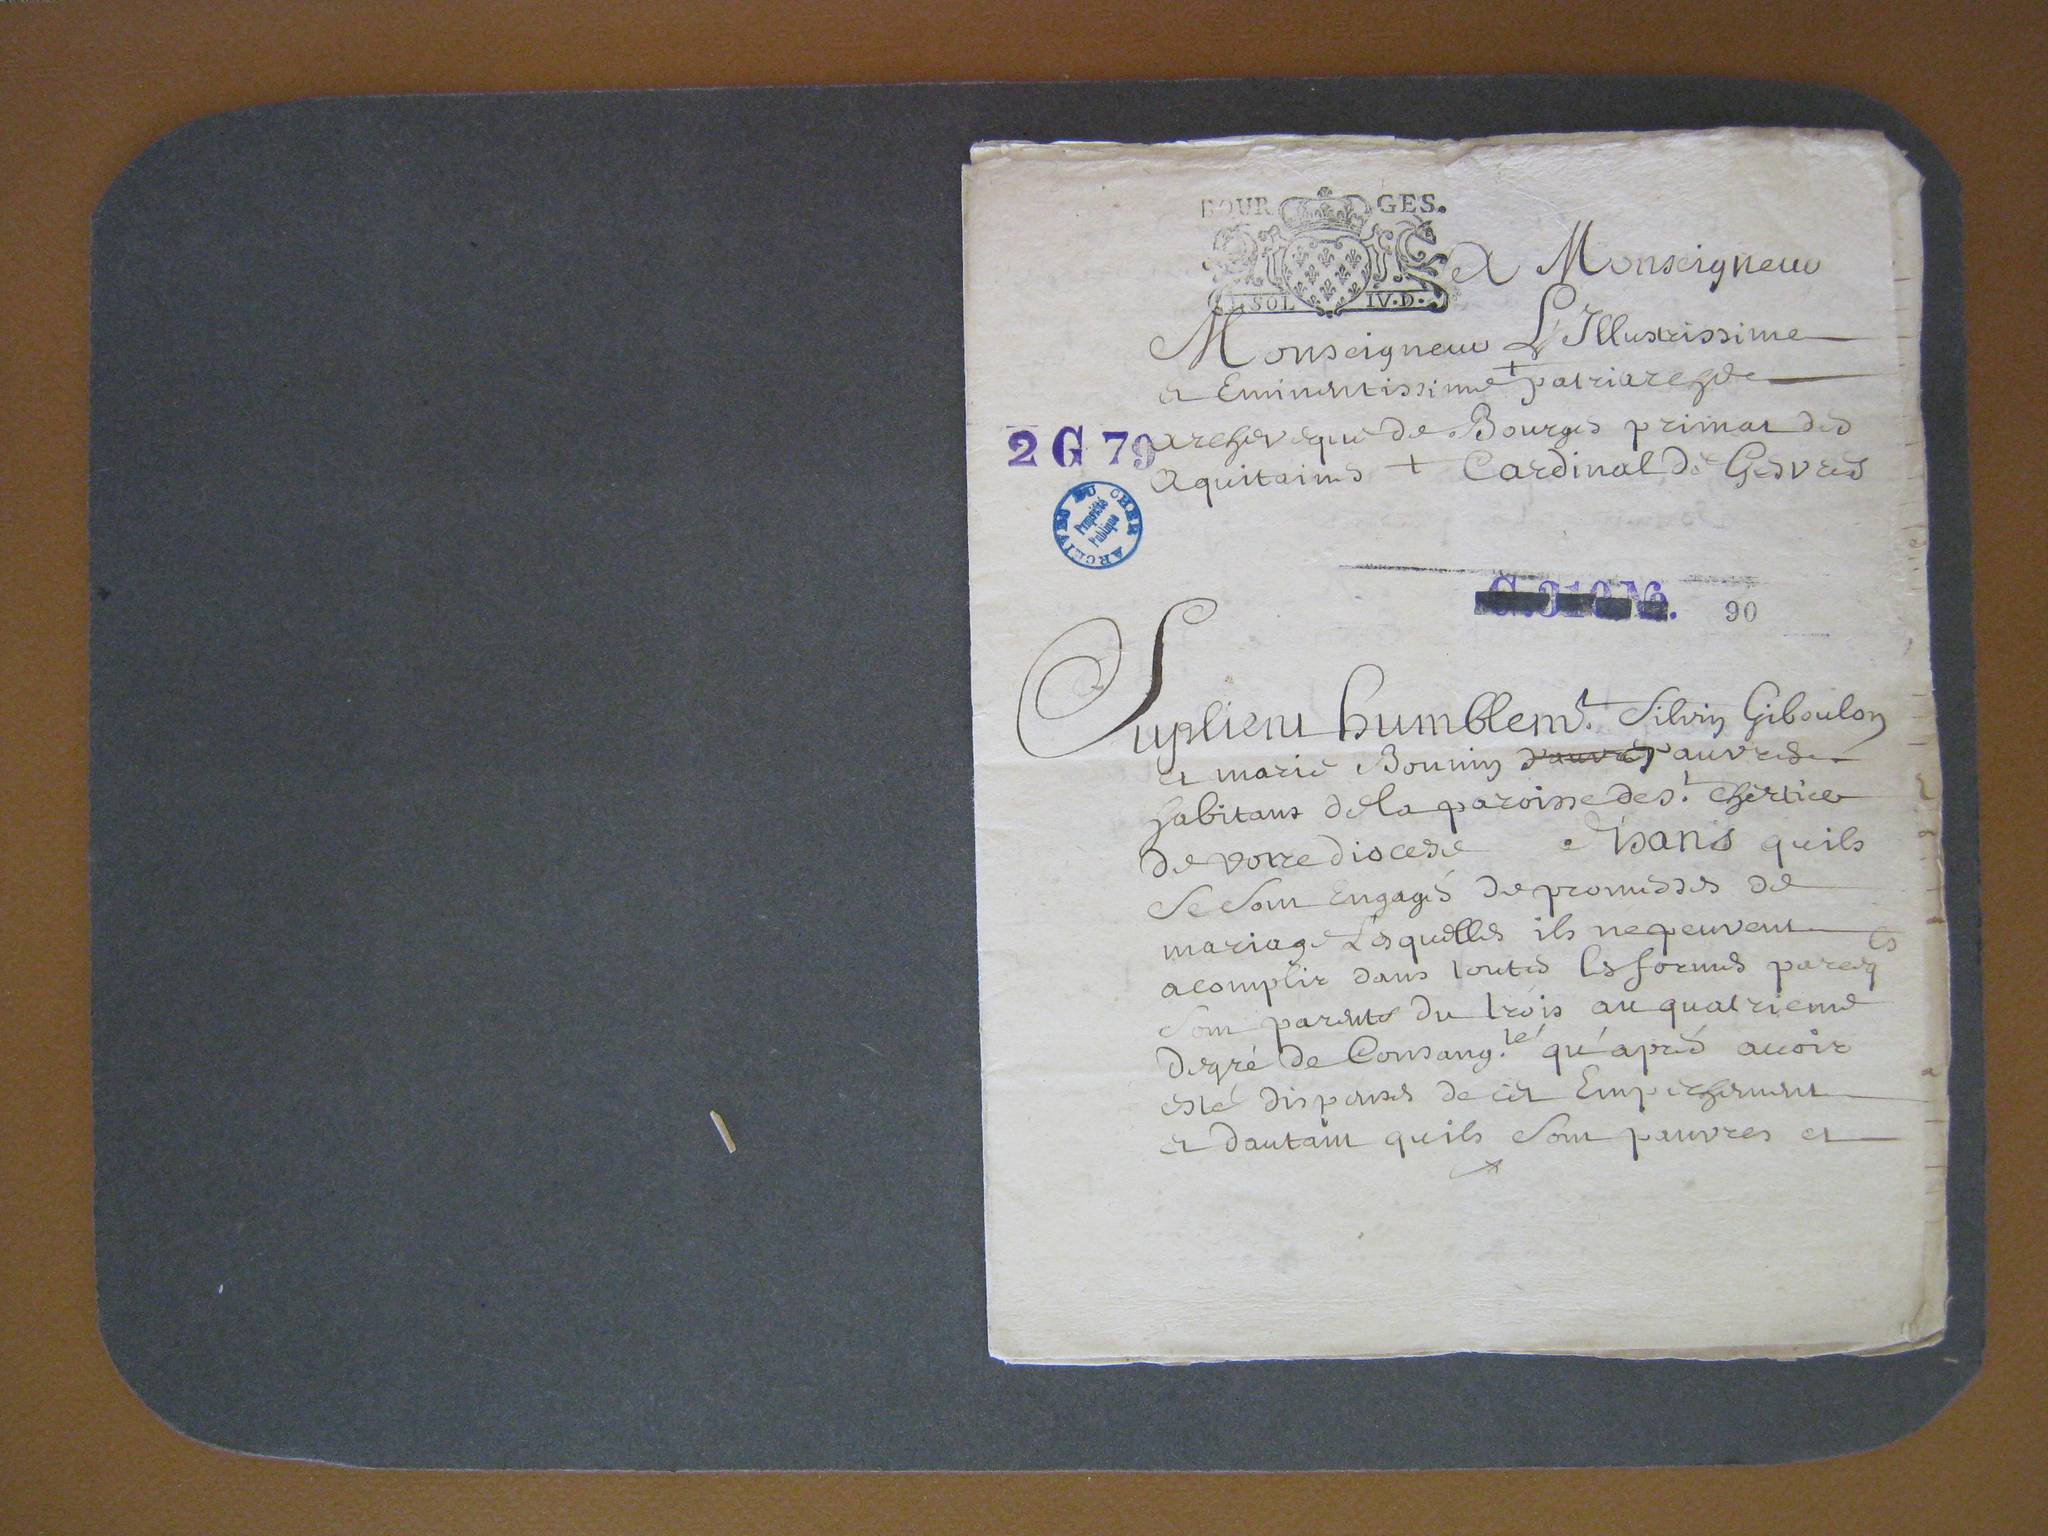 BOURGES.
I. SOL IV. D.
A Monseigneur
Monseigneur L'Illustrissime
et Eminentissime + patriarche
archeveque de Bourges primat des
2 G 79
Aquitaines + Cardinal de Gesvres
ARCHIVES DU CHER
Propriété
Publique
90
Suplient humblemt. Silvin Giboulon
et marie Bonnin pauvres pauvres
habitans de la paroisse de st. chartier
de votre diocese disans quils
se sont engagés de promesses de
mariage Lesquelles ils ne peuvent
acomplir dans toutes les formes parcequ'ils
sont parents du trois au quatrieme
degré de Consang.té qu'aprés avoir
esté dispensés de cet Empechement
et dautant quils sont pauvres et